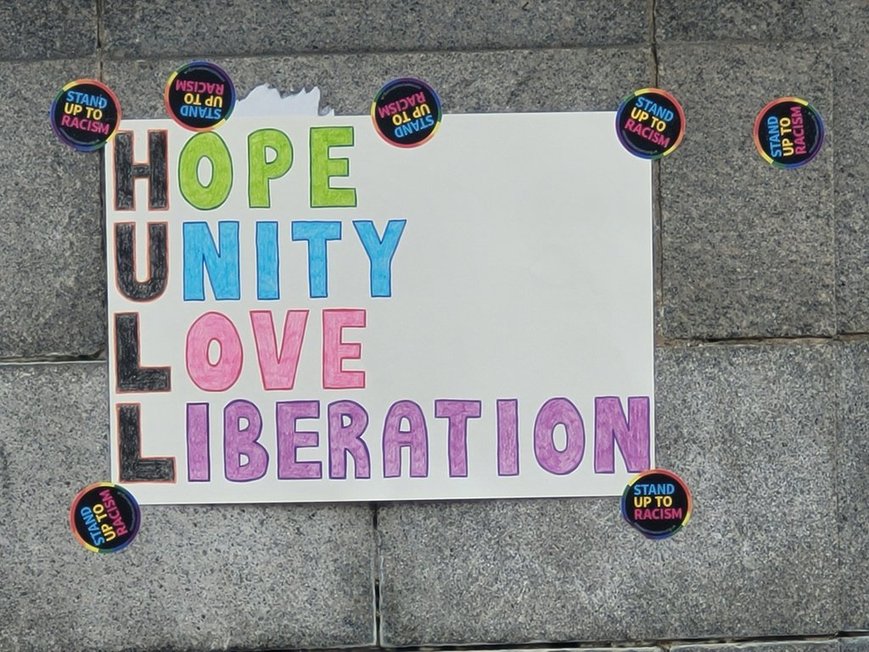 STAND
UP TO
RACISM
STAND
UP TO
RACISM
STAND
UP TO
RACISM
STAND
UP TO
RACISM
STAND
UP TO
RACISM
HOPE
UNITY
LOVE
LIBERATION
STAND
UP TO
RACISM
STAND
UP TO
RACISM